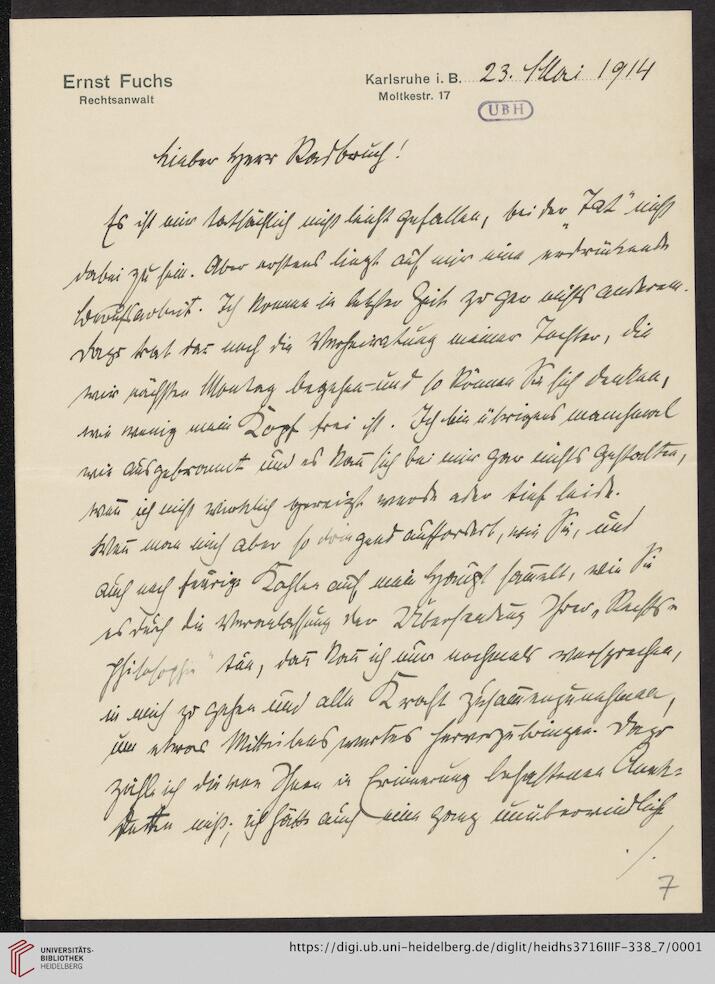 Ernst Fuchs
Rechtsanwalt
Karlsruhe i. B. 23. Mai 1914
Moltkestr. 17
UBH
Lieber Herr Radbruch!
Es ist mir tatsächlich nicht leicht gefallen, bei der „Tat" nicht
dabei zu sein. Aber erstens liegt auf mir eine erdrückende
Berufsarbeit. Ich komme in letzter Zeit zu gar nichts anderem.
Dazu trat noch die Verheiratung meiner Tochter, die
wir nächsten Montag begehen und so können Sie sich denken,
wie wenig mein Kopf frei ist. Ich bin übrigens manchmal
wie ausgebrannt und es kann sich bei mir gar nichts gestalten,
wenn ich nicht wirklich gereizt werde oder tief leide.
Wenn man mich aber so dringend auffordert, wie Sie, und
auch noch feurige Kohlen auf mein Haupt sammelt, wie Sie
es durch die Veranlassung der Übersendung Ihrer „Rechts=
philosophie" tun, dann kann ich nur nochmals versprechen,
in mich zu gehen und alle Kraft zusammenzunehmen,
um etwas Mitteilenswertes hervorzubringen. Dazu
zähle ich die von Ihnen in Erinnerung behaltenen Anek=
doten nicht; ich hätte auch eine ganz unüberwindliche
./.
7
UNIVERSITÄTS-
BIBLIOTHEK
HEIDELBERG
https://digi.ub.uni-heidelberg.de/diglit/heidhs3716IIIF-338_7/0001